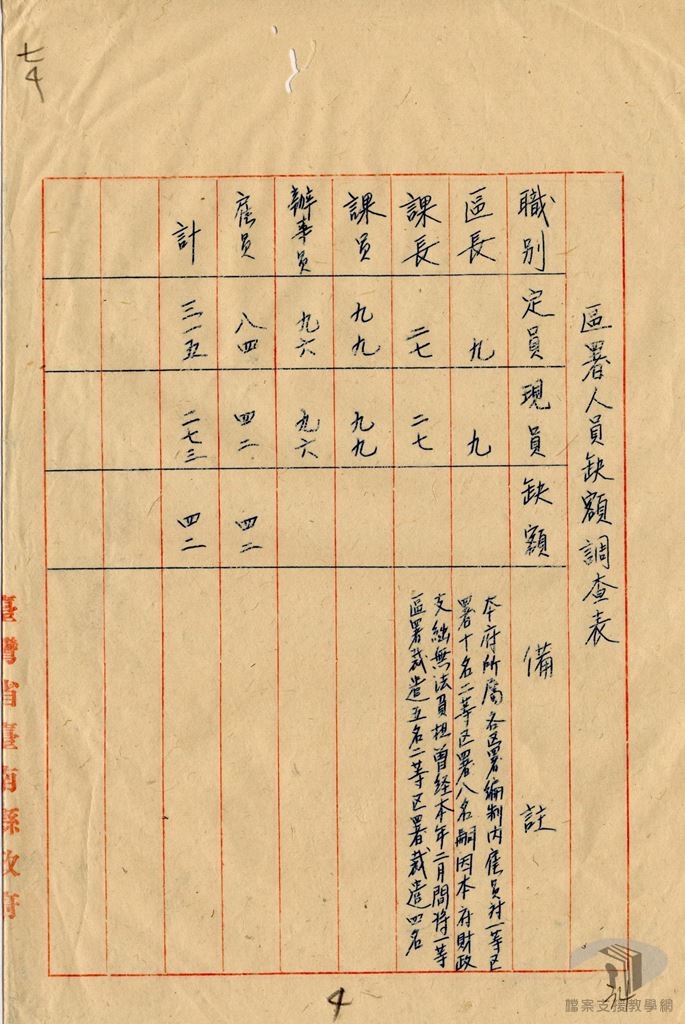 七4
區署人員缺額調查表
職別 定員 現員 缺額 備註
區長 九 九
課長 二七 二七
課員 九九 九九
辦事員 九六 九六
雇員 八四 四二 四二
計 三一五 二七三 四二
本府所屬各区署編制内雇員对一等区
署十名二等区署八名嗣因本府財政
支絀無法負担曾経本年二月間将一等
區署裁遣五名二等区署裁遣四名
臺灣省臺南縣政府
4
檔案支援教學網